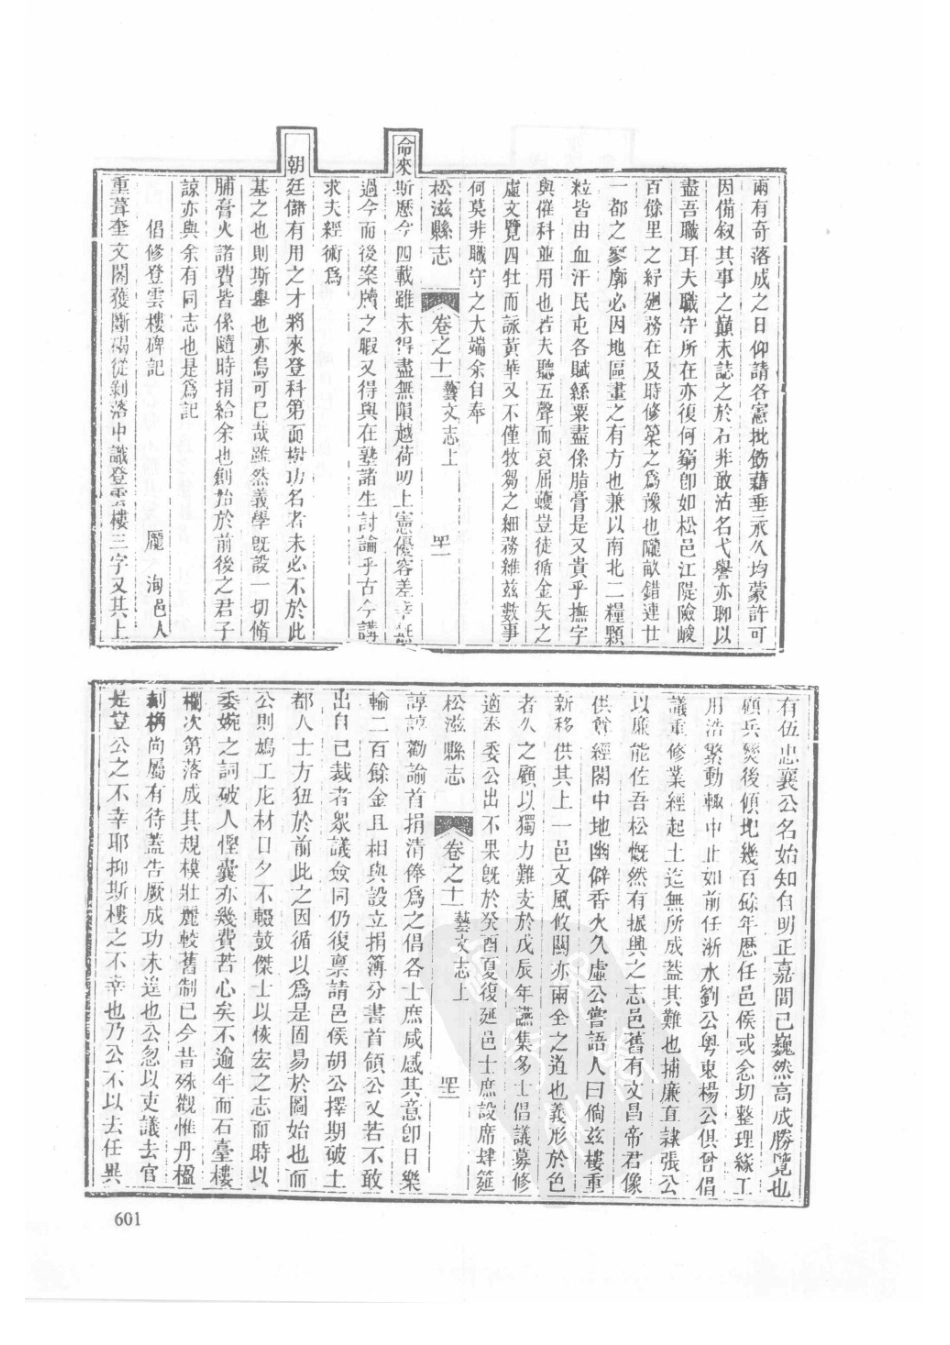 兩有奇落成之日仰請各憲批飭藉垂永久均蒙許可
因備叙其事之巔末誌之於石非敢沽名弋譽亦聊以
盡吾職耳夫職守所在亦復何窮卽如松邑江隄險峻
百餘里之紆廻務在及時修築之爲豫也隴畝錯連廿
一都之寥廓必因地區畫之有方也兼以南北二糧顆
粒皆由血汗民屯各賦絲粟盡係脂膏是又貴乎撫字
與催科並用也若夫聽五聲而哀屈蠖豈徒循金矢之
虛文覽四牡而詠黃華又不僅牧芻之細務維兹數事
何莫非職守之大端余自奉
松滋縣志 卷之十一 藝文志上 四一
命來斯歷今四載雖未得盡無隕越荷叨上憲優容差幸
過今而後案牘之暇又得與在塾諸生討論乎古今講
求夫經術爲
朝廷儲有用之才將來登科第而樹功名者未必不於此
基之也則斯舉也亦烏可已哉雖然義學旣設一切脩
脯膏火諸費皆係隨時捐給余也創始於前後之君子
諒亦與余有同志也是爲記
倡修登雲樓碑記 洵邑人
重葺奎文閣獲斷碣從剝落中識登雲樓三字又其上
有伍忠襄公名始知自明正嘉間已巍然高成勝覽也
顧兵燹後傾圯幾百餘年歷任邑侯或念切整理緣工
用浩繁動輒中止如前任浙水劉公粤東楊公俱曾倡
議重修業經起土迄無所成蓋其難也捕廉直隷張公
以廉能佐吾松慨然有振興之志邑舊有文昌帝君像
供尊經閣中地幽僻香火久虛公嘗語人曰倘兹樓重
新移供其上一邑文風攸關亦兩全之道也義形於色
者久之顧以獨力難支於戊辰年讌集多士倡議募修
適奉委公出不果旣於癸酉夏復延邑士庶設席肆筵
松滋縣志 卷之十一 藝文志上 四二
諄諄勸諭首捐清俸爲之倡各士庶咸感其意卽日樂
輸二百餘金且相與設立捐簿分書首領公又若不敢
出自已裁者衆議僉同仍復禀請邑侯胡公擇期破土
都人士方狃於前此之因循以爲是固易於圖始也而
公則鳩工庀材日夕不輟鼓傑士以恢宏之志而時以
委婉之詞破人慳囊亦幾費苦心矣不逾年而石臺樓
欄次第落成其規模壯麗較舊制已今昔殊觀惟丹楹
刻桷尚屬有待蓋告厥成功未遑也公忽以吏議去官
是豈公之不幸耶抑斯樓之不幸也乃公不以去任異
601